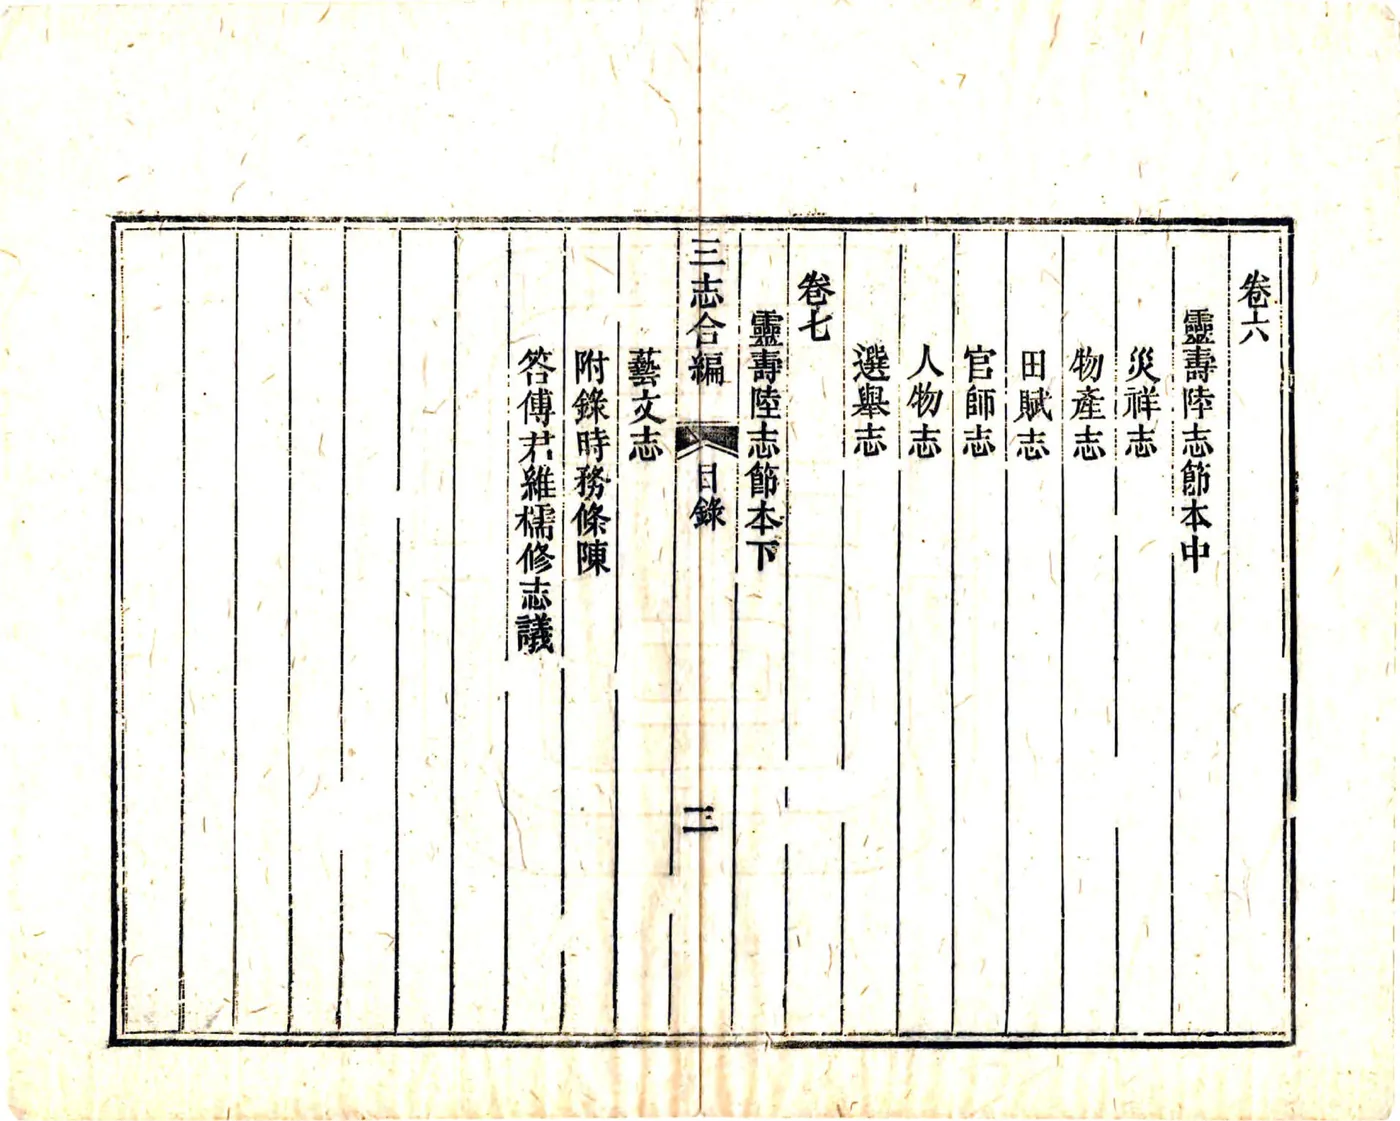 卷六
靈壽陸志節本中
災祥志
物產志
田賦志
官師志
人物志
選舉志
卷七
靈壽陸志節本下
三志合編 目錄 三
藝文志
附錄時務條陳
答傅君維橒修志議